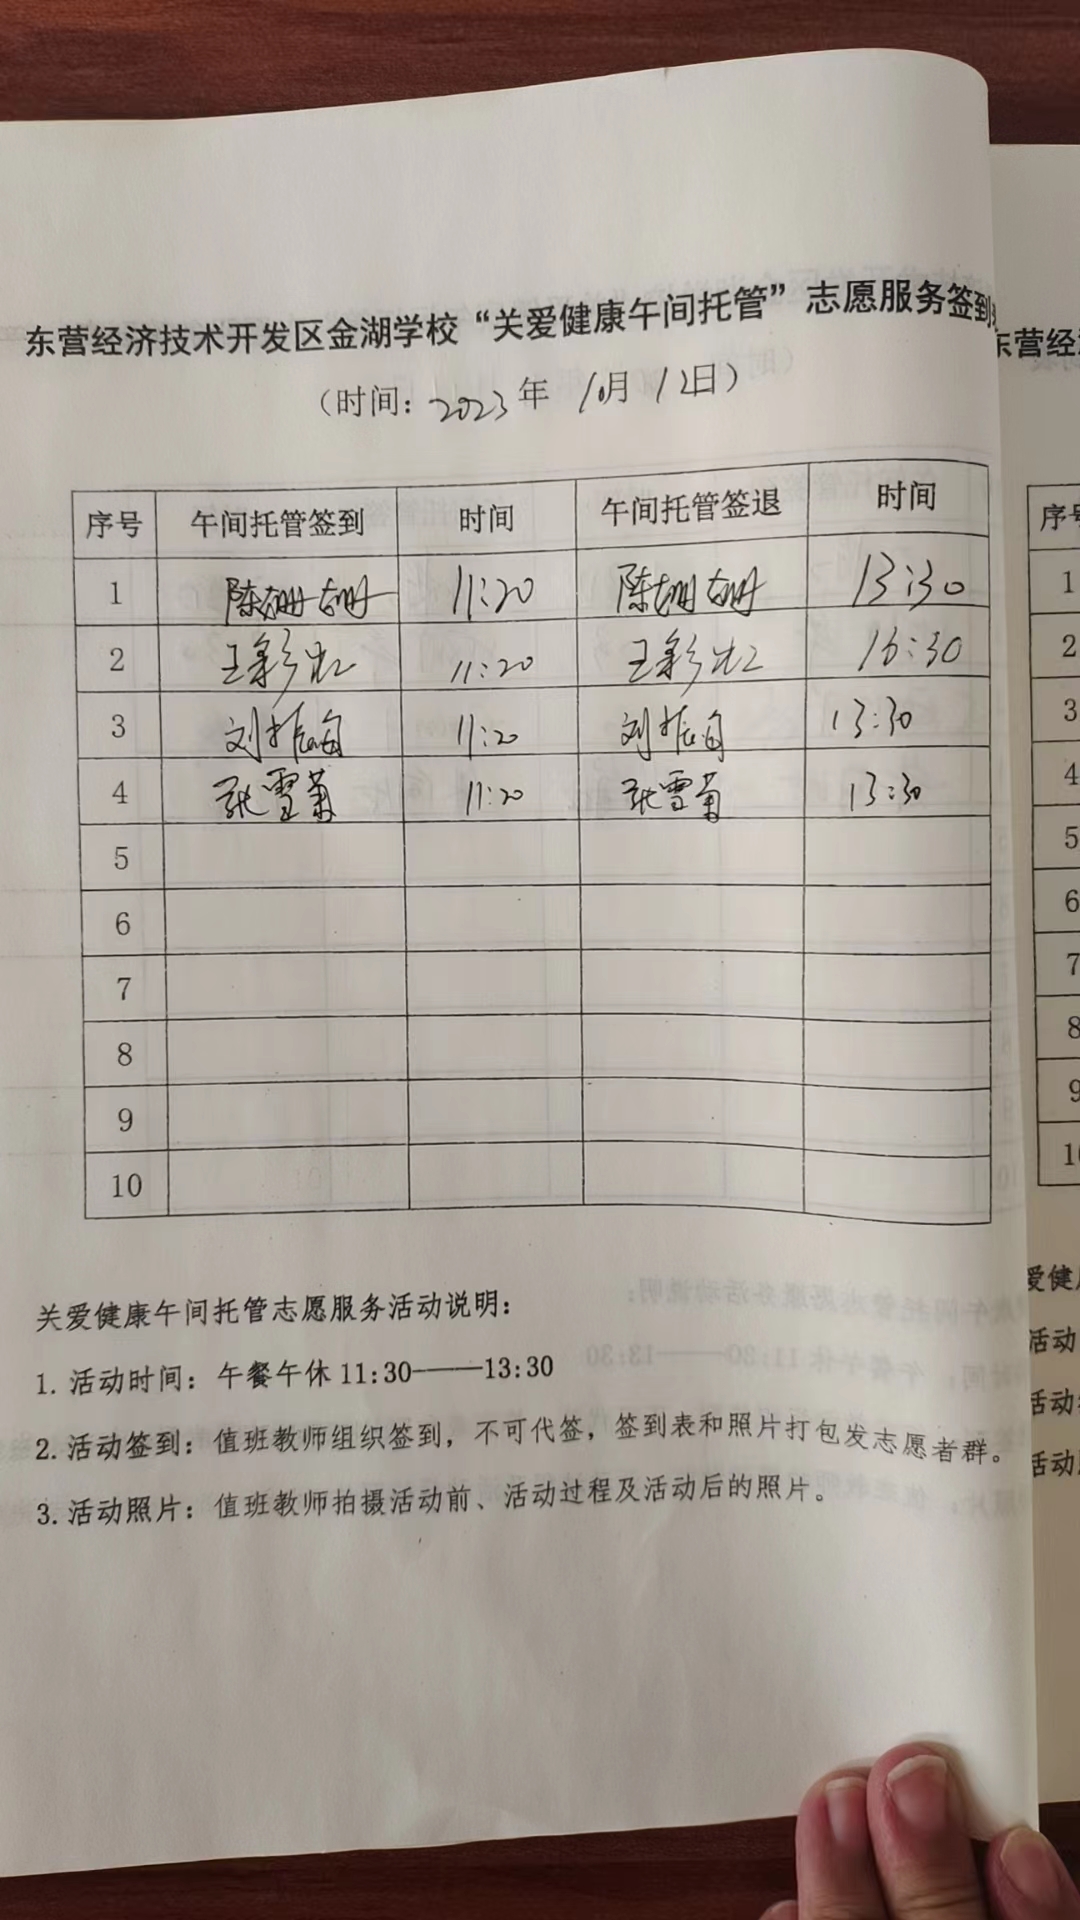 东营经济技术开发区金湖学校“关爱健康午间托管”志愿服务签到
（时间：2023年 10月12日）
序号 午间托管签到 时间 午间托管签退 时间
1 陈珊珊 11:20 陈珊珊 13:30
2 王彩虹 11:20 王彩虹 16:30
3 刘振 11:20 刘振 13:30
4 张雪菊 11:20 张雪菊 13:30
5
6
7
8
9
10
关爱健康午间托管志愿服务活动说明：
1. 活动时间：午餐午休 11:30——13:30
2. 活动签到：值班教师组织签到，不可代签，签到表和照片打包发志愿者群。
3. 活动照片：值班教师拍摄活动前、活动过程及活动后的照片。
东营经
序号
1
2
3
4
5
6
7
8
9
爱健
活动
活动
活动